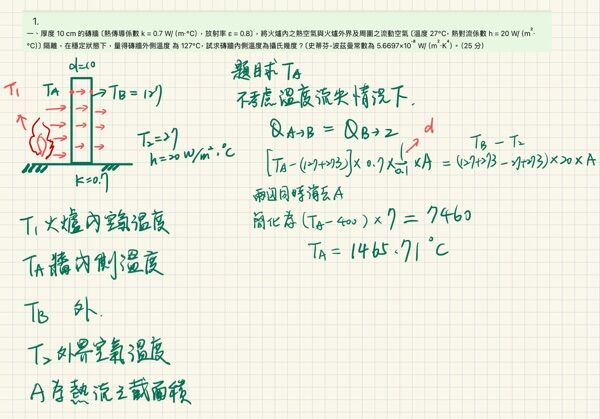 1.
一、厚度 10 cm 的磚牆〔熱傳導係數 k = 0.7 W/ (m·°C),放射率 ε = 0.8〕,將火爐內之熱空氣與火爐外界及周圍之流動空氣〔溫度 27°C,熱對流係數 h = 20 W/ (m²·
°C)〕隔離。在穩定狀態下,量得磚牆外側溫度 為 127°C,試求磚牆內側溫度為攝氏幾度?(史蒂芬-波茲曼常數為 5.6697×10⁻⁸ W/ (m²·K⁴)。(25 分)
d=10
T₁
TA
TB = 127
T₂=27
h=20 W/m²·°C
K=0.7
T₁ 火爐內空氣溫度
TA 牆內側溫度
TB 外.
T₂ 外界空氣溫度
A為熱流之截面積
題目求 TA
不考慮溫度流失情況下.
QA→B = QB→2
d
TB - T₂
[TA-(127+273)] × 0.7 × 1/0.1 × A = (127+273-27+273) × 20 × A
兩邊同時消去A
簡化為 (TA-400) × 7 = 7460
TA = 1465.71 °C